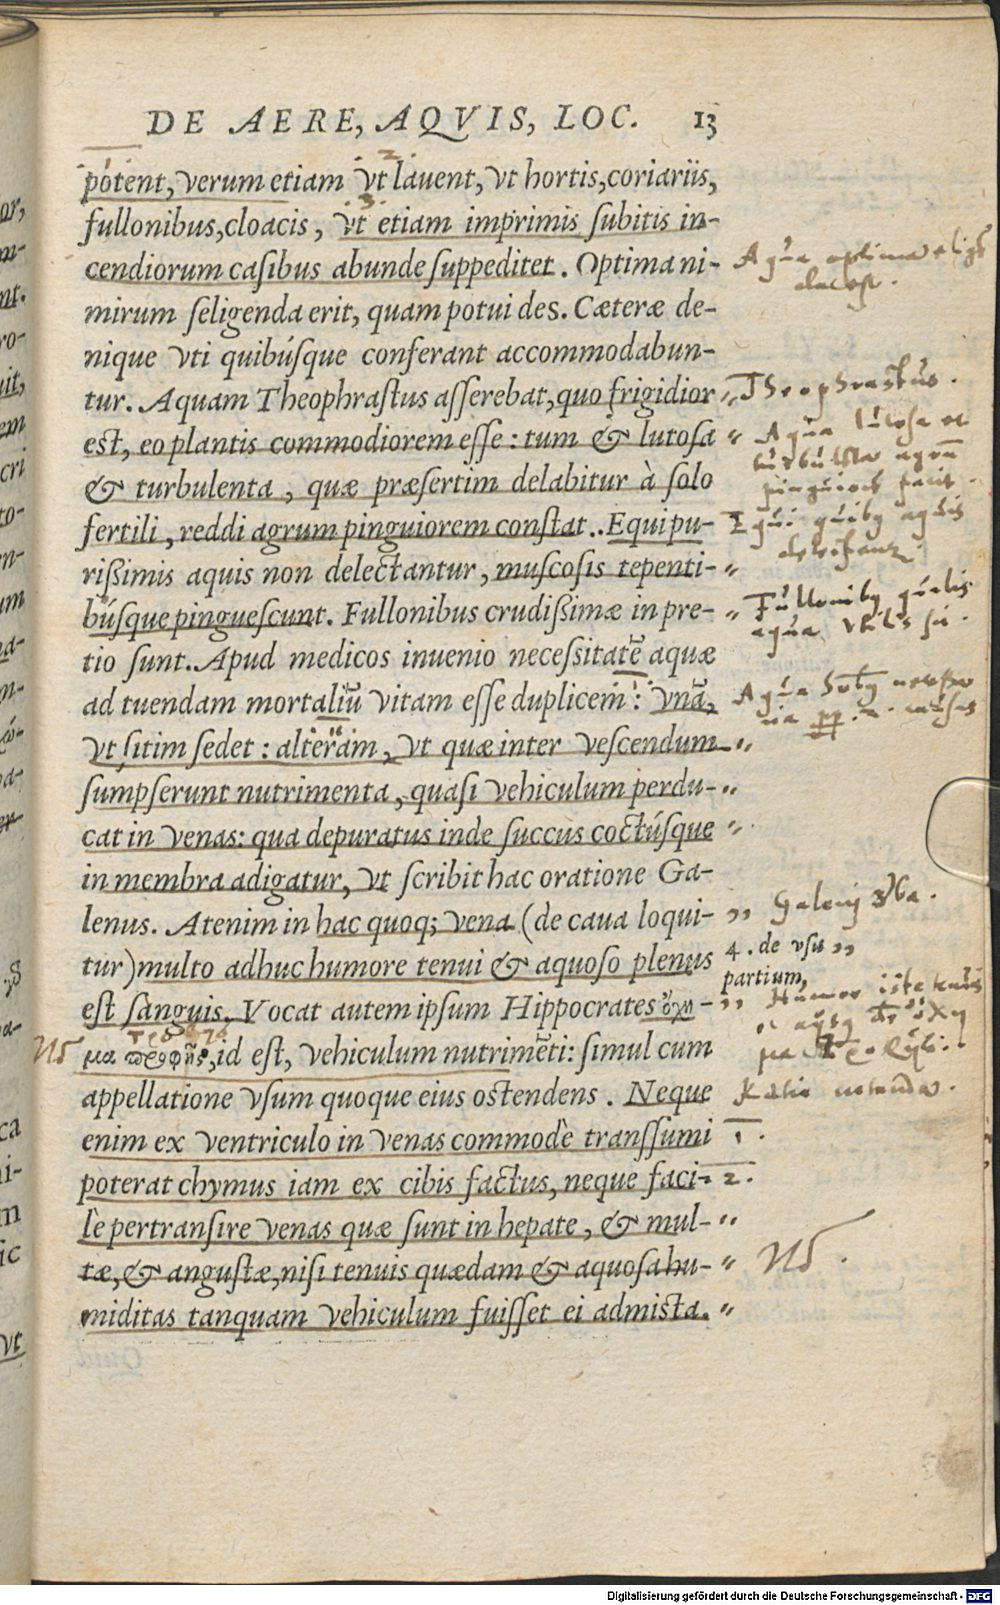 DE AERE, AQVIS, LOC. 13
potent, verum etiam vt lauent, vt hortis, coriariis,
fullonibus, cloacis, vt etiam imprimis subitis in-
cendiorum casibus abunde suppeditet. Optima ni-
mirum seligenda erit, quam potui des. Cæteræ de-
nique vti quibúsque conferant accommodabun-
tur. Aquam Theophrastus asserebat, quo frigidior
est, eo plantis commodiorem esse: tum & lutosa
& turbulenta, quæ præsertim delabitur à solo
fertili, reddi agrum pinguiorem constat. Equi pu-
rißimis aquis non delectantur, muscosis tepenti-
búsque pinguescunt. Fullonibus crudißimæ in pre-
tio sunt. Apud medicos inuenio necessitatē aquæ
ad tuendam mortaliū vitam esse duplicem: vnā,
vt sitim sedet: alteram, vt quæ inter vescendum
sumpserunt nutrimenta, quasi vehiculum perdu-
cat in venas: qua depuratus inde succus coctúsque
in membra adigatur, vt scribit hac oratione Ga-
lenus. Atenim in hac quoq; vena (de caua loqui-
tur) multo adhuc humore tenui & aquoso plenus
est sanguis. Vocat autem ipsum Hippocrates ὄχη-
μα τροφῆς, id est, vehiculum nutrimēti: simul cum
appellatione vsum quoque eius ostendens. Neque
enim ex ventriculo in venas commodè transsumi
poterat chymus iam ex cibis factus, neque faci-
lè pertransire venas quæ sunt in hepate, & mul-
tæ, & angustæ, nisi tenuis quædam & aquosa hu-
miditas tanquam vehiculum fuisset ei admista.
2
3
Aqua optima
Theophrastus.
Aqua lutosa et
agrum
facit.
Equi aquis
aqua
Aqua
Galeni
4. de vsu
partium,
Humor
1.
2.
Digitalisierung gefördert durch die Deutsche Forschungsgemeinschaft - DFG